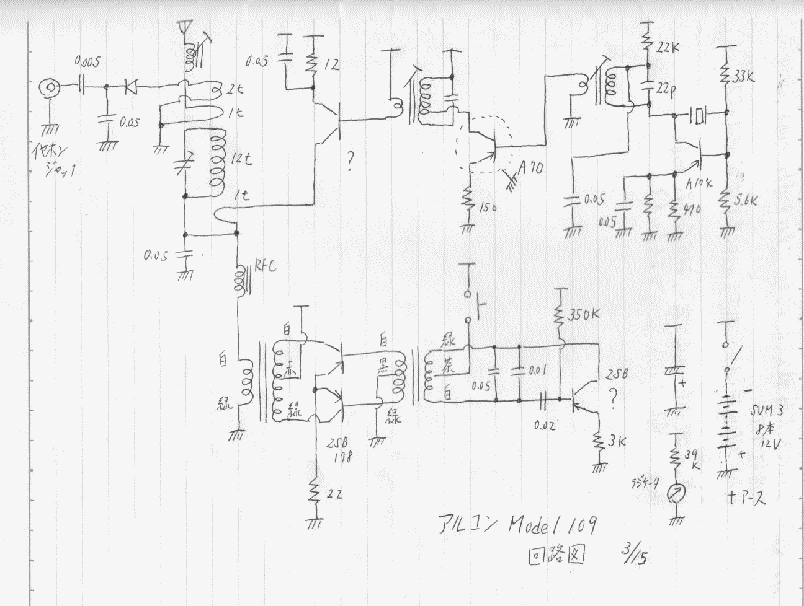 0.005
0.05
イヤホン
ジャック
2t
1t
12t
1t
0.05
RFC
0.05
12
?
150
A70
22K
22p
33K
0.05
0.05
470
5.6K
白
緑
白
赤
緑
2SB
178
22
白
黒
緑
緑
茶
白
0.05
0.01
0.02
350K
2SB
?
3K
+
39
K
-
+
SUM 3
8本
12V
+アース
アルコン Model 109
回路図 3/15